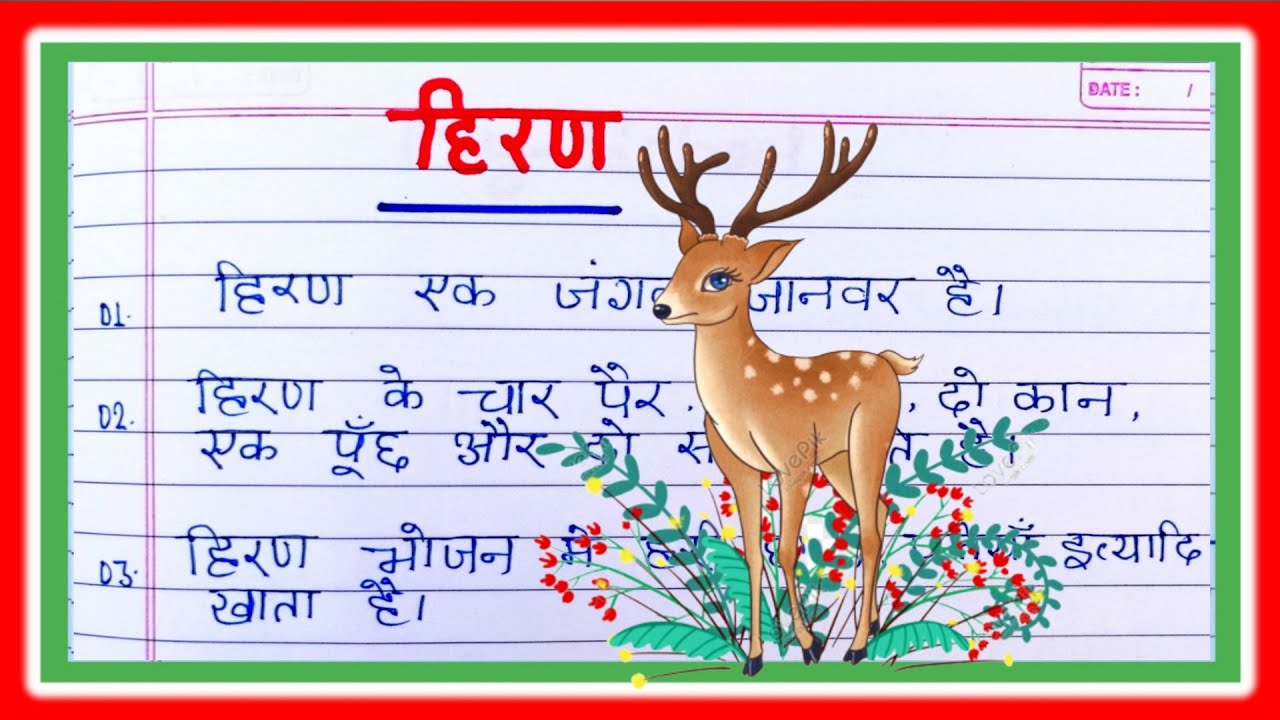 DATE: /
हिरण
01. हिरण एक जानवर है।
02. हिरण के चार पैर, दो कान,
एक पूँछ और दो
03. हिरण भोजन में इत्यादि
खाता है।